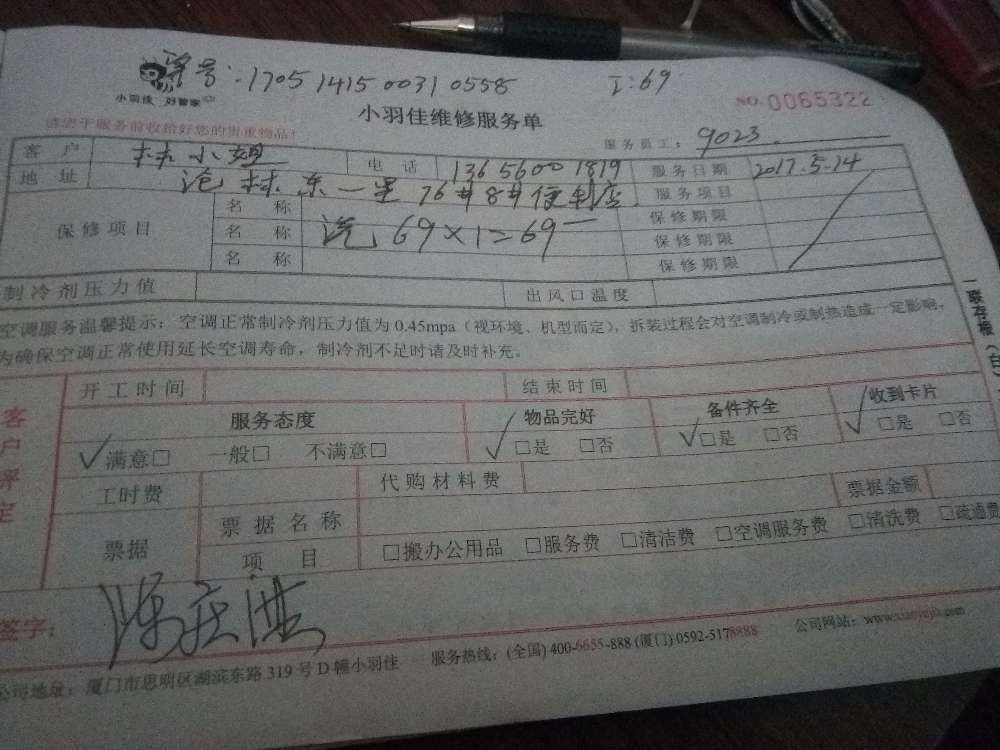 单号:1705 1415 0031 0558 工:69
小羽佳 好管家
NO.0065322
小羽佳维修服务单
请您于服务前收拾好您的贵重物品!
服务员工:9023
客户 林小姐 电话 13656001819 服务日期 2017.5.14
地址 沧林东一里76#8#便利店 服务项目
保修项目 名称 保修期限
名称 洗 69×1=69 保修期限
名称 保修期限
制冷剂压力值 出风口温度
空调服务温馨提示:空调正常制冷剂压力值为0.45mpa(视环境、机型而定),拆装过程会对空调制冷或制热造成一定影响,
为确保空调正常使用延长空调寿命,制冷剂不足时请及时补充。
一联存根(白)
客户评定
开工时间 结束时间
服务态度 物品完好 备件齐全 收到卡片
✓满意□ 一般□ 不满意□ ✓□是 □否 ✓□是 □否 ✓□是 □否
工时费 代购材料费
票据 票据名称 票据金额
项目 □搬办公用品 □服务费 □清洁费 □空调服务费 □清洗费 □疏通费
签字:
公司地址:厦门市思明区湖滨东路319号D幢小羽佳 服务热线:(全国)400-6655-888(厦门)0592-5178888 公司网站:www.xiaoyujia.com